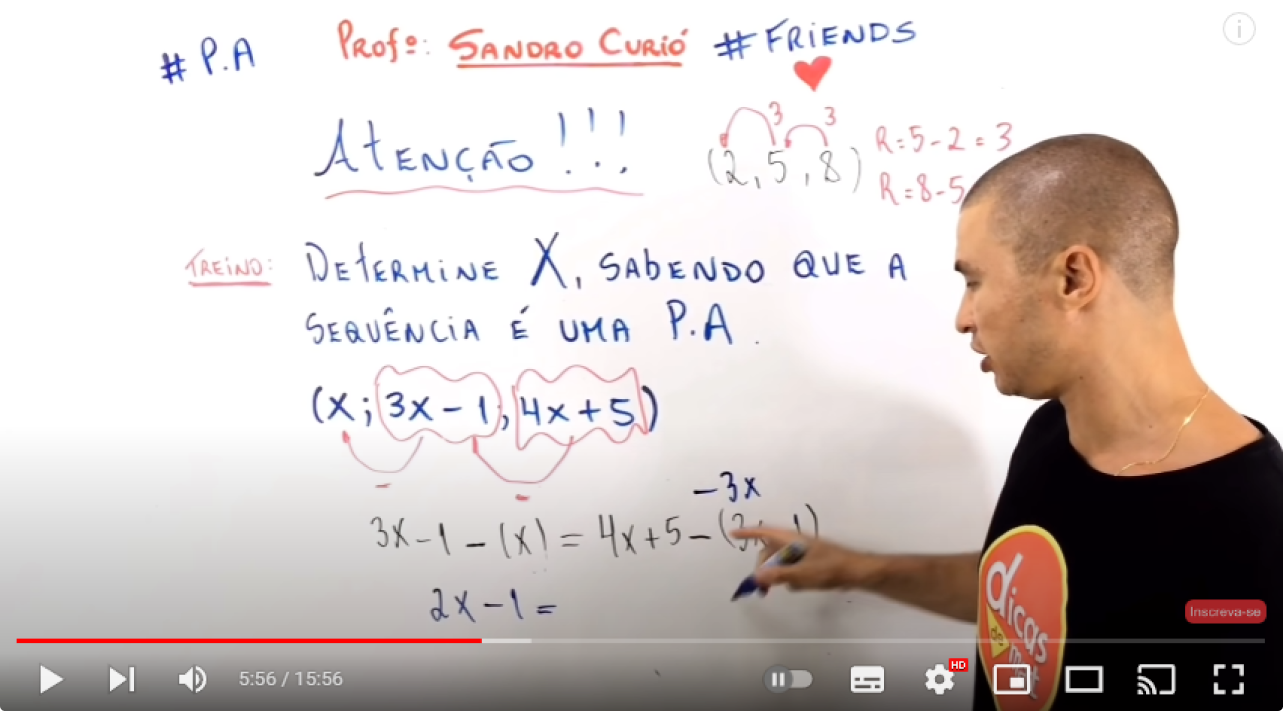 # P.A Profº: SANDRO CURIÓ # FRIENDS
ATENÇÃO !!!
3 3
(2, 5, 8) R = 5 - 2 = 3
R = 8 - 5
TREINO: DETERMINE X, SABENDO QUE A
SEQUÊNCIA É UMA P.A.
(x; 3x - 1; 4x + 5)
- -
- 3x
3x - 1 - (x) = 4x + 5 - (3x - 1)
2x - 1 =
dicas
de
mat
Inscreva-se
5:56 / 15:56
HD